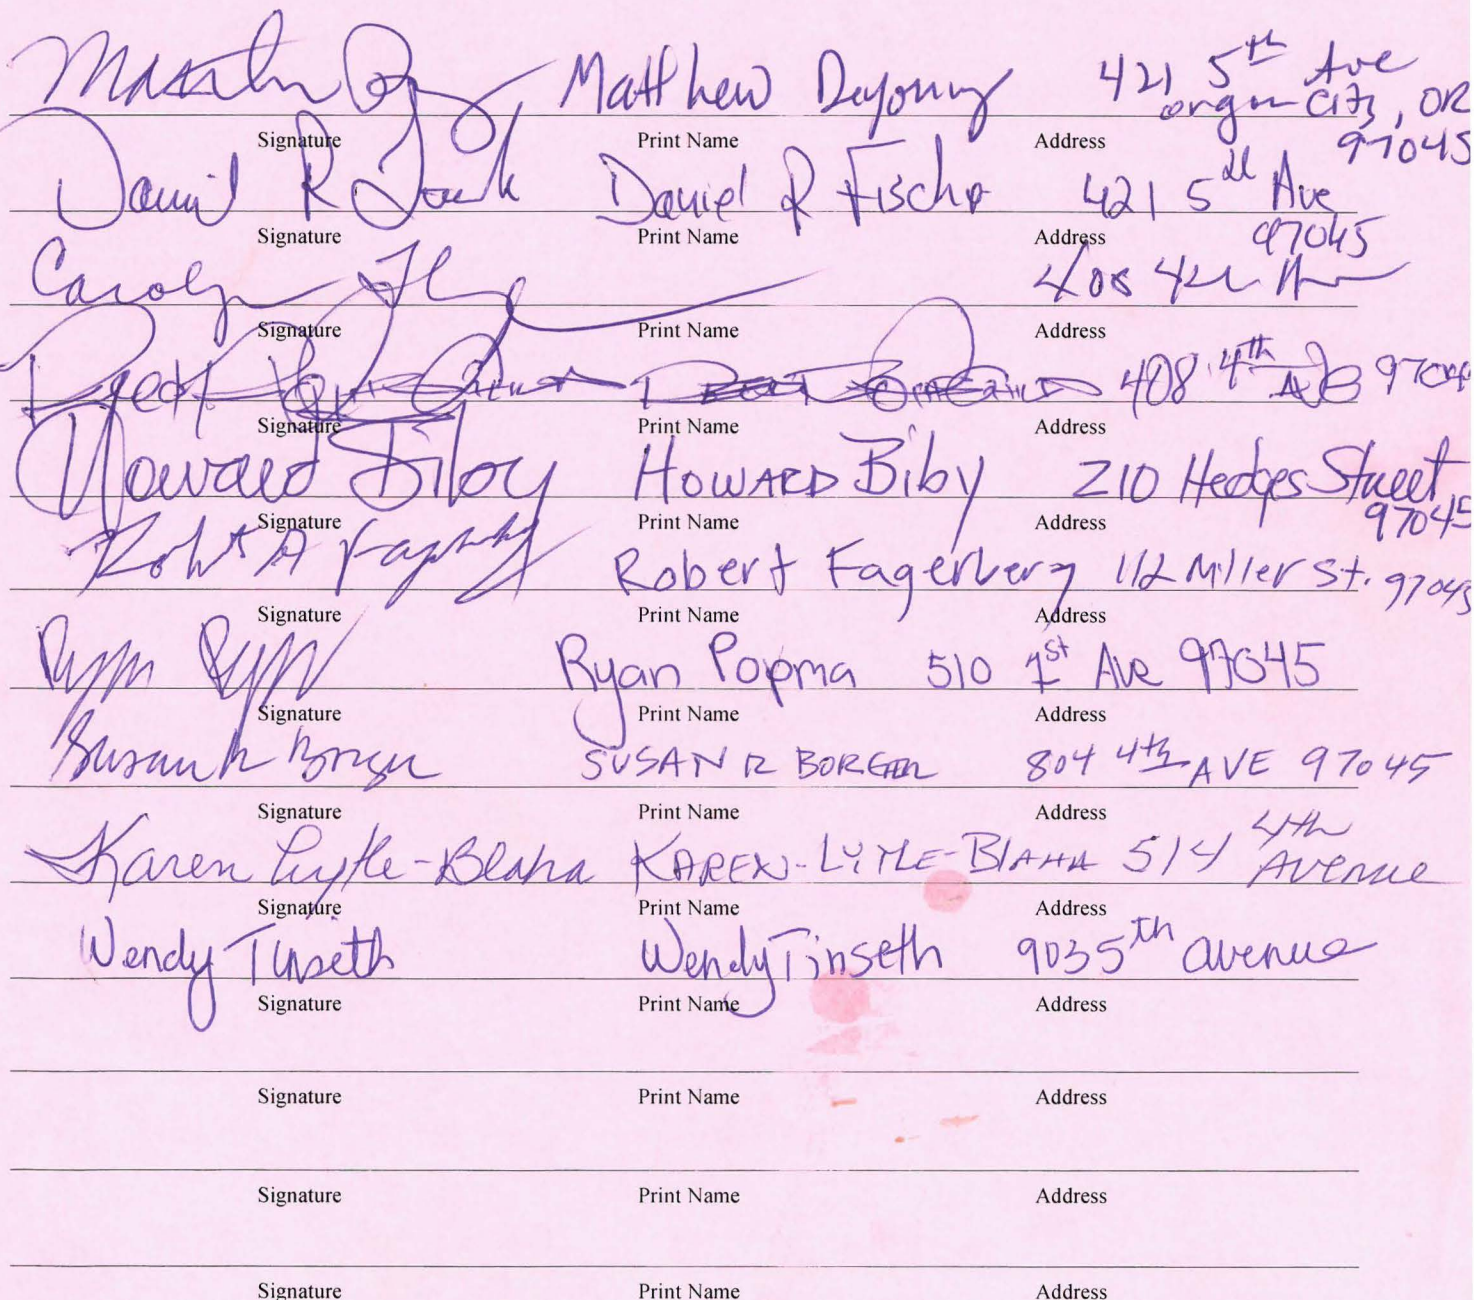 Matthew Deyoung 421 5th Ave
Oregon City, OR
Signature Print Name Address 97045
Daniel R Daniel R Fischer 421 5th Ave
Signature Print Name Address 97045
Carolyn 408 4th Ave
Signature Print Name Address
408 4th Ave 97045
Signature Print Name Address
Howard Biby HOWARD Biby 210 Hedges Street
Signature Print Name Address 97045
Robt A Robert Fagerberg 112 Miller St. 97045
Signature Print Name Address
Ryan Popma 510 1st Ave 97045
Signature Print Name Address
Susan R Borger SUSAN R BORGER 804 4th AVE 97045
Signature Print Name Address
Karen Lytle-Blaha KAREN-LYTLE-BLAHA 514 4th Avenue
Signature Print Name Address
Wendy Tinseth Wendy Tinseth 903 5th avenue
Signature Print Name Address
Signature Print Name Address
Signature Print Name Address
Signature Print Name Address